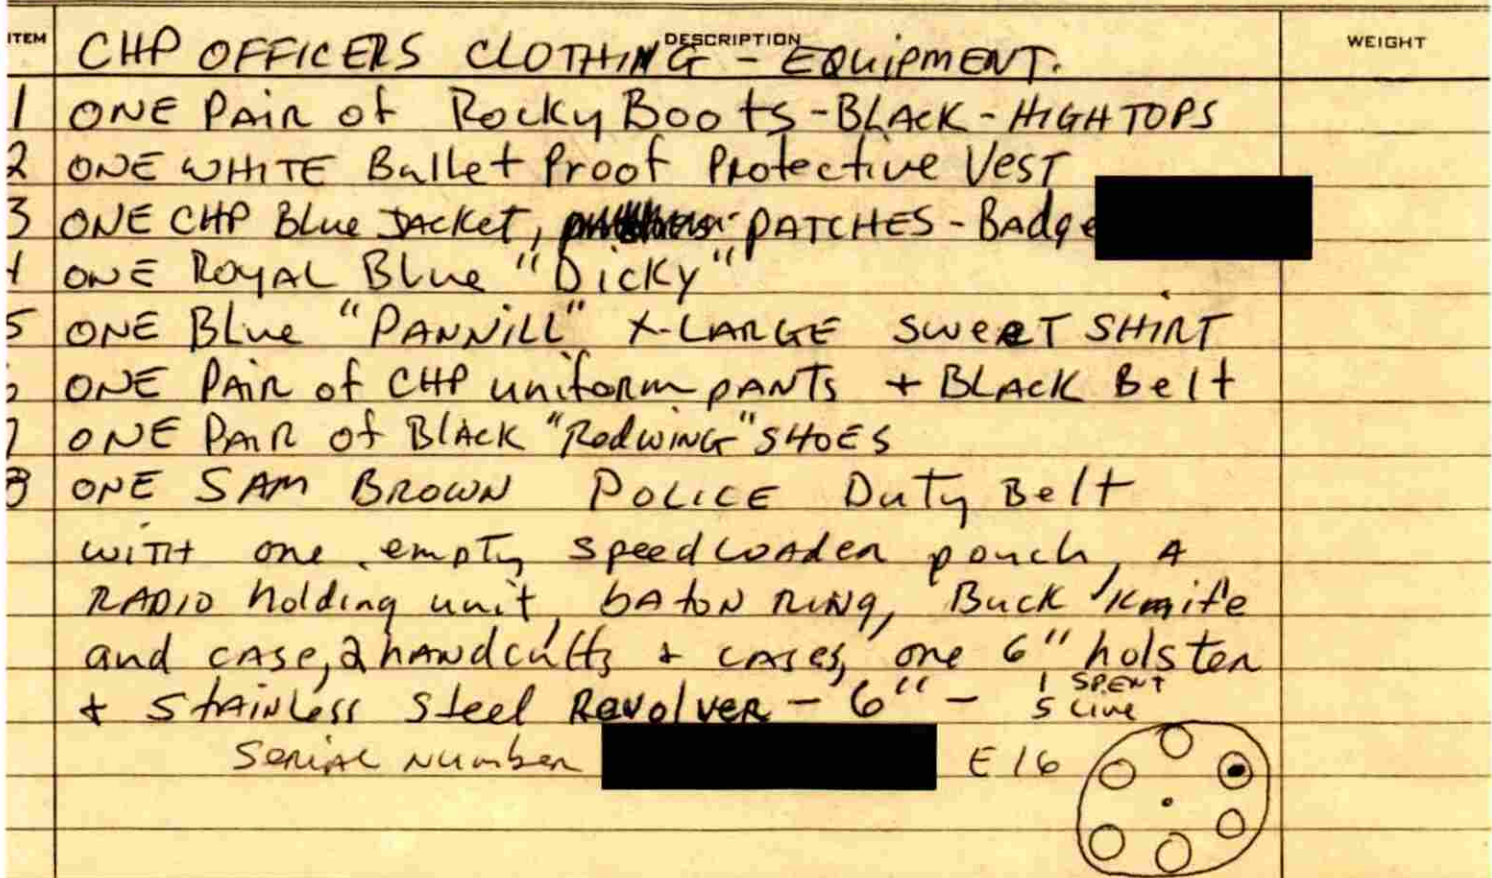 ITEM DESCRIPTION WEIGHT
CHP OFFICERS CLOTHING - EQUIPMENT.
1 ONE PAIR of Rocky Boots - BLACK - HIGH TOPS
2 ONE WHITE Bullet Proof Protective VEST
3 ONE CHP Blue JACKET, PATCHES - Badge
4 ONE ROYAL BLUE "Dicky"
5 ONE Blue "PANNILL" X-LARGE SWEET SHIRT
6 ONE PAIR of CHP uniform PANTS + BLACK Belt
7 ONE PAIR of BLACK "Redwing" SHOES
8 ONE SAM BROWN POLICE Duty Belt
WITH one empty speedloader pouch, A
RADIO holding unit, bATON RING, Buck knife
and CASE, 2 HANDcuffs + CASES, one 6" holster
+ Stainless Steel Revolver - 6" - 1 SPENT
5 Live
Serial Number E 16